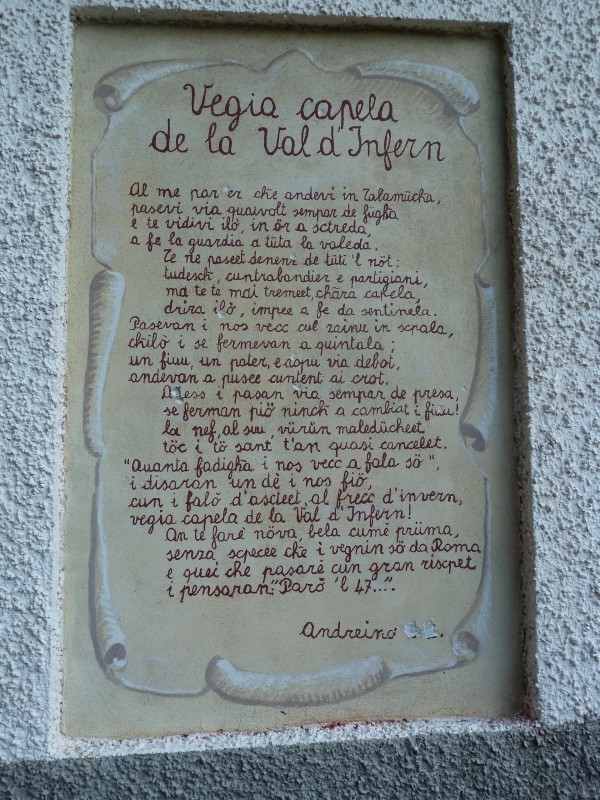 Vegia capela
de la Val d'Infern
Al me par er che andevi in Talamücka,
pasevi via quaivolt sempar de füga
e te vidivi ilò, in ör a sctreda,
a fe la guardia a tüta la valeda.
Te ne paseet denenz de tüti 'l nöt:
tudesck, cuntrabandier e partigiani,
ma te té mai tremeet, chära capela,
driza ilò, impee a fe da sentinela.
Pasevan i nos vecc cul zainu in scpala,
chilò i se fermevan a quintala;
un fiuu, un pater, e aopu via deboi,
andevan a pusee cuntent ai crot.
Adess i pasan via sempar de presa,
se ferman piö ninck a cambiat i fiuu!
la nef, al suu, vürün maledücheet
töc i tö sant t'an quasi cancelet.
"Quanta fadigha i nos vecc a fala sö",
i disaran un dè i nos fiö,
cun i falò d'ascleet, al frecc d'invern,
vegia capela de la Val d'Infern!
An te farè növa, bela cumè prüma,
senza scpecee che i vegnin sö da Roma
e quei che pasarè cun gran riscpet
i pensaran: "Parò 'l 47...".
Andreino